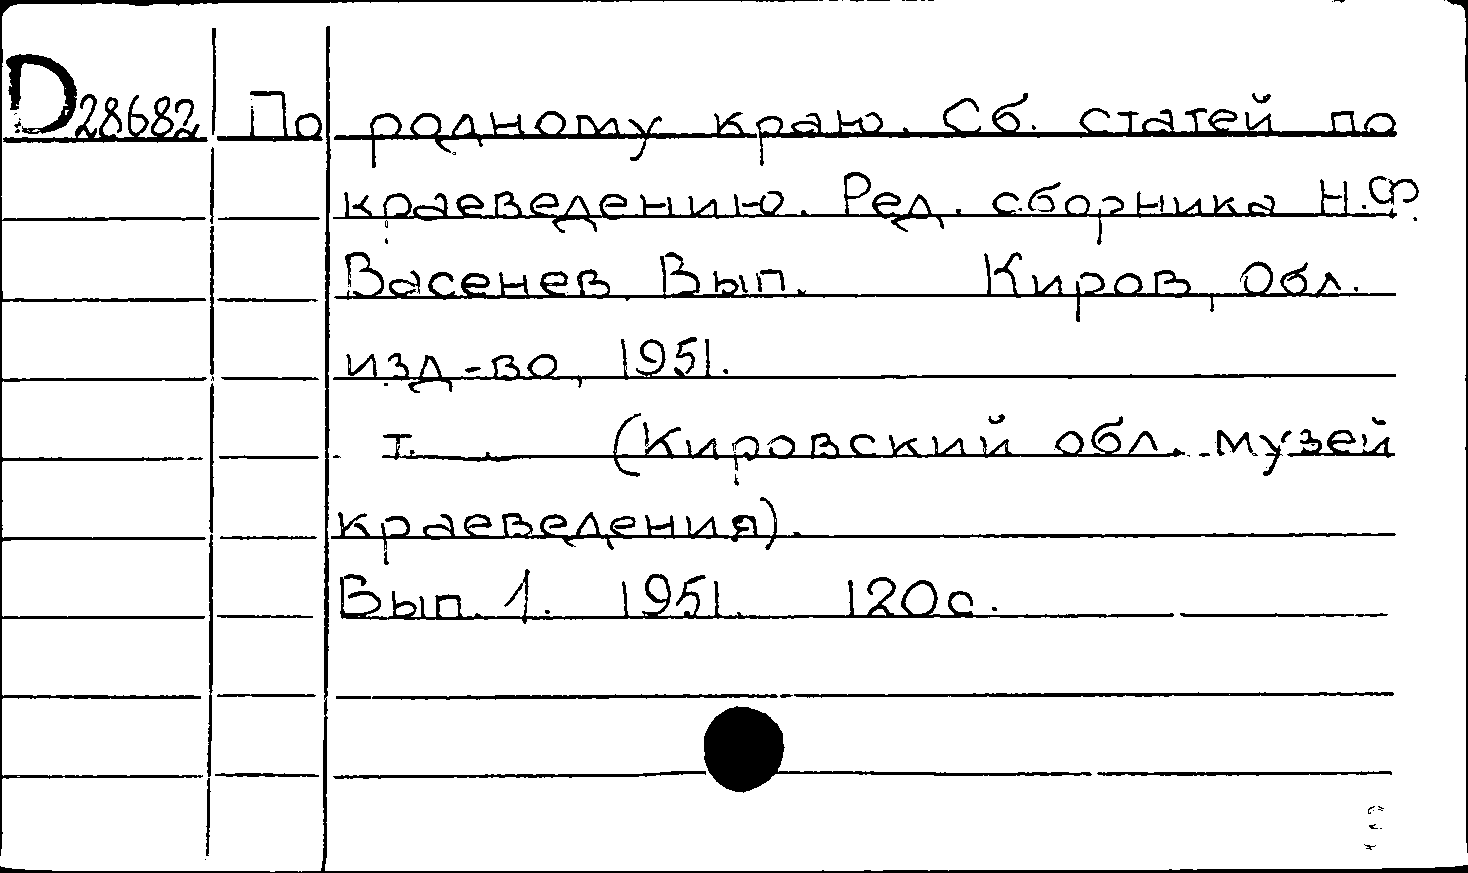 D28682 По родному краю. Сб. статей по
краеведению. Ред. сборника Н.Ф.
Васенев. Вып. Киров, Обл.
изд-во, 1951.
т. (Кировский обл. музей
краеведения).
Вып. 1. 1951. 120с.